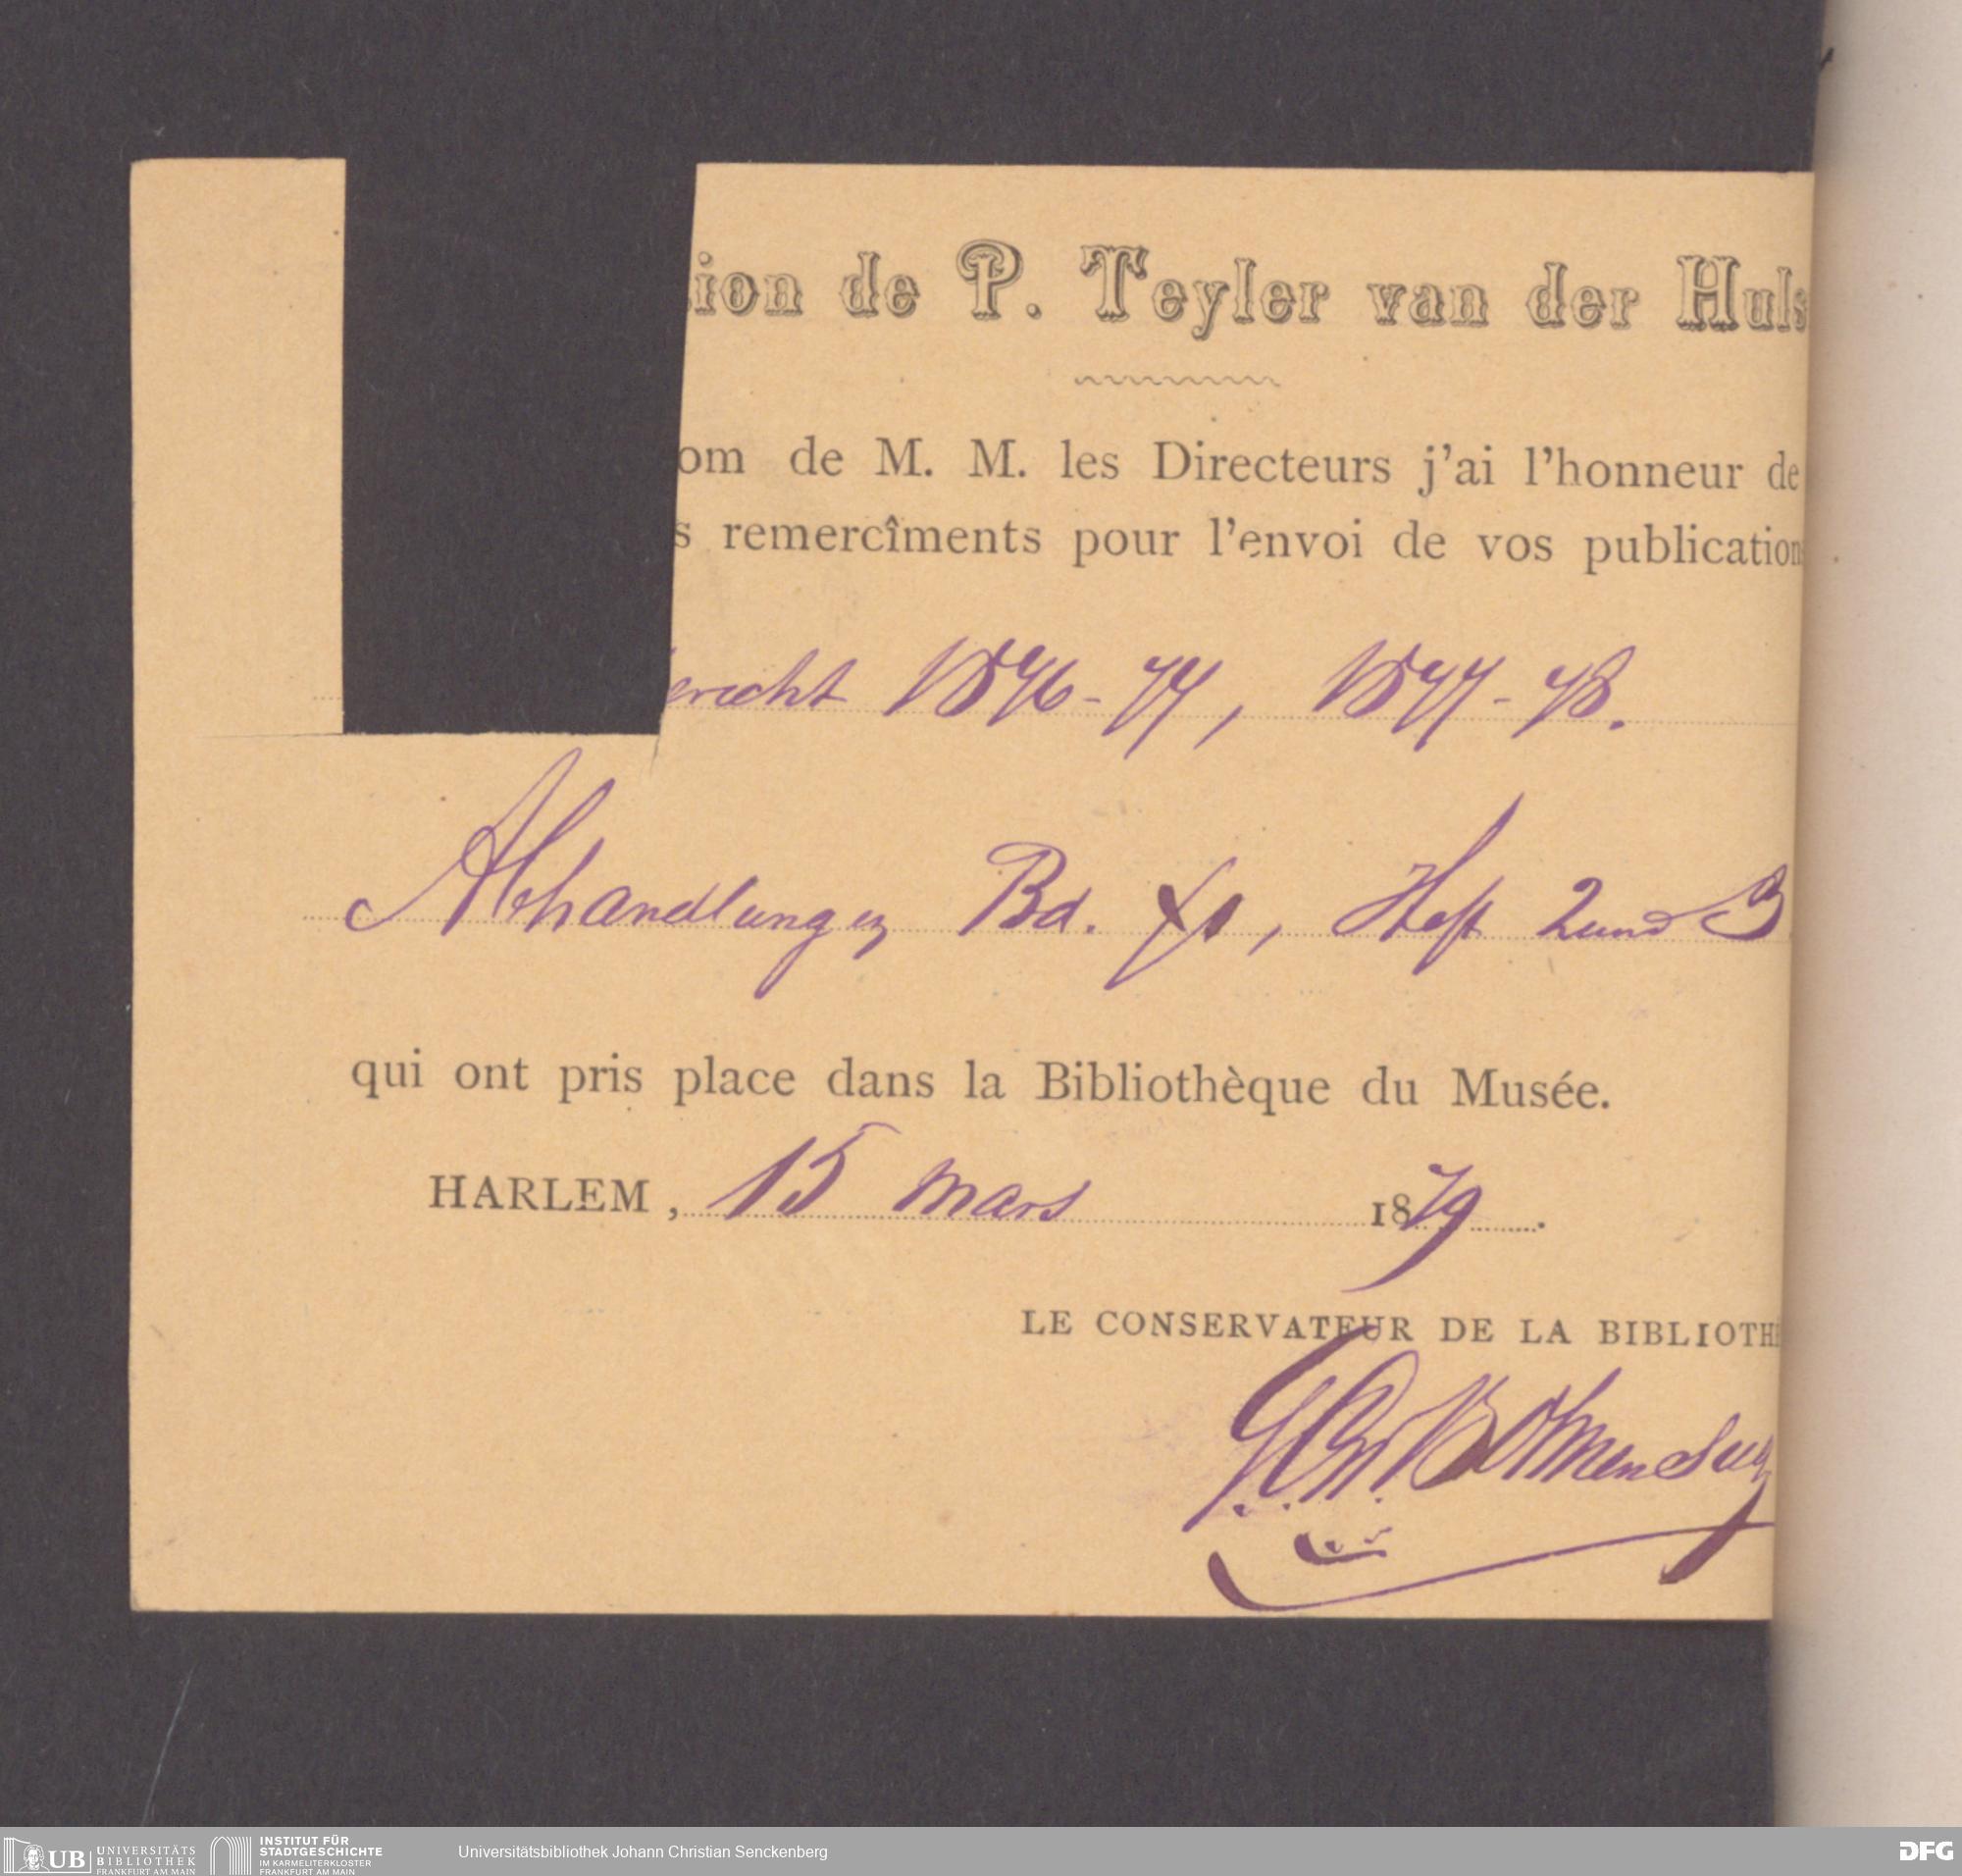 ion de P. Teyler van der Huls
om de M. M. les Directeurs j'ai l'honneur de
s remercîments pour l'envoi de vos publication
ericht 1876-77, 1877-78.
Abhandlungen Bd. XI, Heft 2 und 3
qui ont pris place dans la Bibliothèque du Musée.
HARLEM, 15 mars 1879.
LE CONSERVATEUR DE LA BIBLIOTHÈ
UB UNIVERSITÄTS BIBLIOTHEK FRANKFURT AM MAIN
INSTITUT FÜR STADTGESCHICHTE IM KARMELITERKLOSTER FRANKFURT AM MAIN
Universitätsbibliothek Johann Christian Senckenberg
DFG